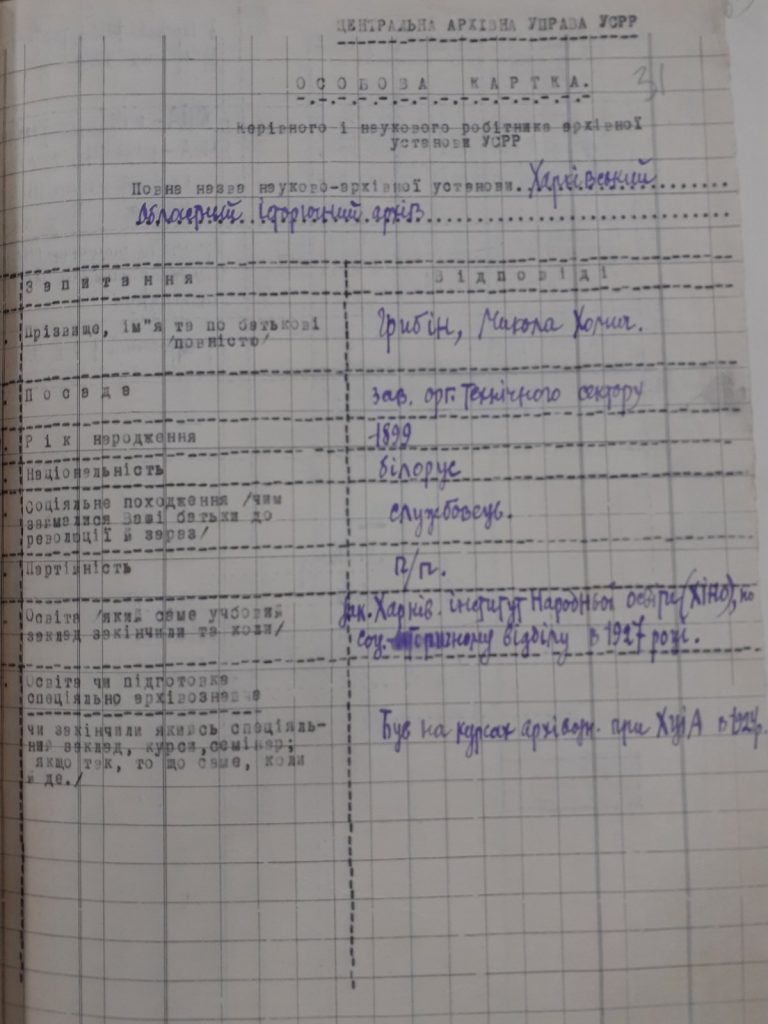 ЦЕНТРАЛЬНА АРХІВНА УПРАВА УСРР
31
ОСОБОВА КАРТКА.
Керівного і наукового робітника архівної
установи УСРР
Повна назва науково-архівної установи. Харківський
Обласний історичний архів
Запитання Відповіді
Прізвище, ім"я та по батькові Грибін, Микола Хомич.
/повністю/
Посада зав. орг. Технічного сектору
Рік народження 1899
Національність білорус
Соціяльне походження /чим
займалися Ваші батьки до службовець.
революції й зараз/
Партійність п/п.
Освіта /який саме учбовий зак. Харків. інститут Народньої освіти (ХІНО), по
заклад закінчили та коли/ соц. відділу в 1927 році.
Освіта чи підготовка
спеціяльно архівознавча
чи закінчили якийсь спеціяль- Був на курсах архівозн. при в р.
ний заклад, курси, семінар;
якщо так, то що саме, коли
й де./